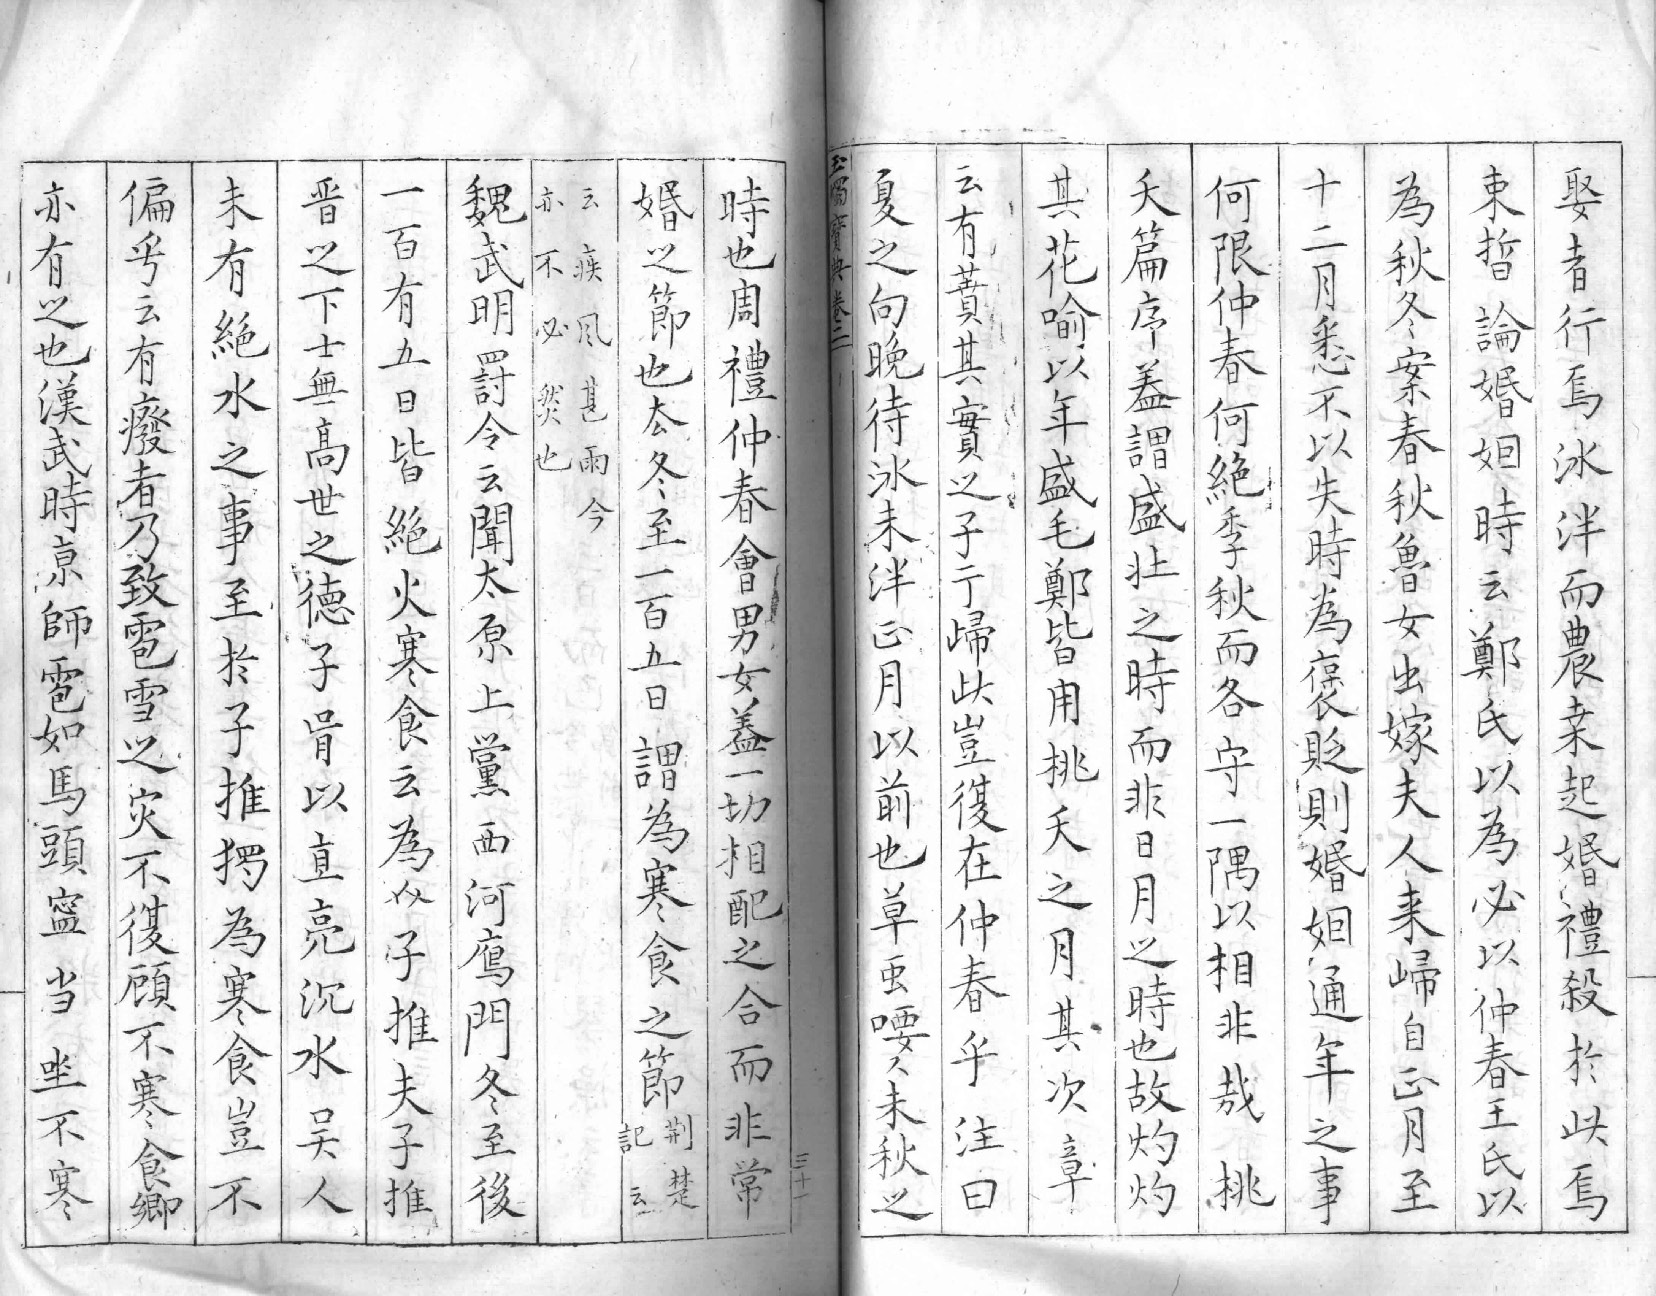 娶者行焉冰泮而農桒起婚禮殺於此焉
束晳論婚姻時云鄭氏以為必以仲春王氏以
為秋冬案春秋魯女出嫁夫人来歸自正月至
十二月悉不以失時為褒貶則婚姻通年之事
何限仲春何絕季秋而各守一隅以相非哉桃
夭篇序盖謂盛壮之時而非日月之時也故灼灼
其花喻以年盛毛鄭皆用桃夭之月其次章
云有蕡其實之子于歸此豈復在仲春乎注曰
夏之向晚待冰未泮正月以前也草虫喓〻未秋之
玉燭寶典卷二
三十一
時也周禮仲春會男女盖一切相配之合而非常
婚之節也去冬至一百五日謂為寒食之節荆楚
記云
云疾風甚雨今
亦不必然也
魏武明罸令云聞太原上黨西河鴈門冬至後
一百有五日皆絕火寒食云為介子推夫子推
晋之下士無高世之德子胥以直亮沉水吴人
未有絕水之事至於子推獨為寒食豈不
偏乎云有廢者乃致雹雪之灾不復顧不寒食鄉
亦有之也漢武時京師雹如馬頭寧當坐不寒